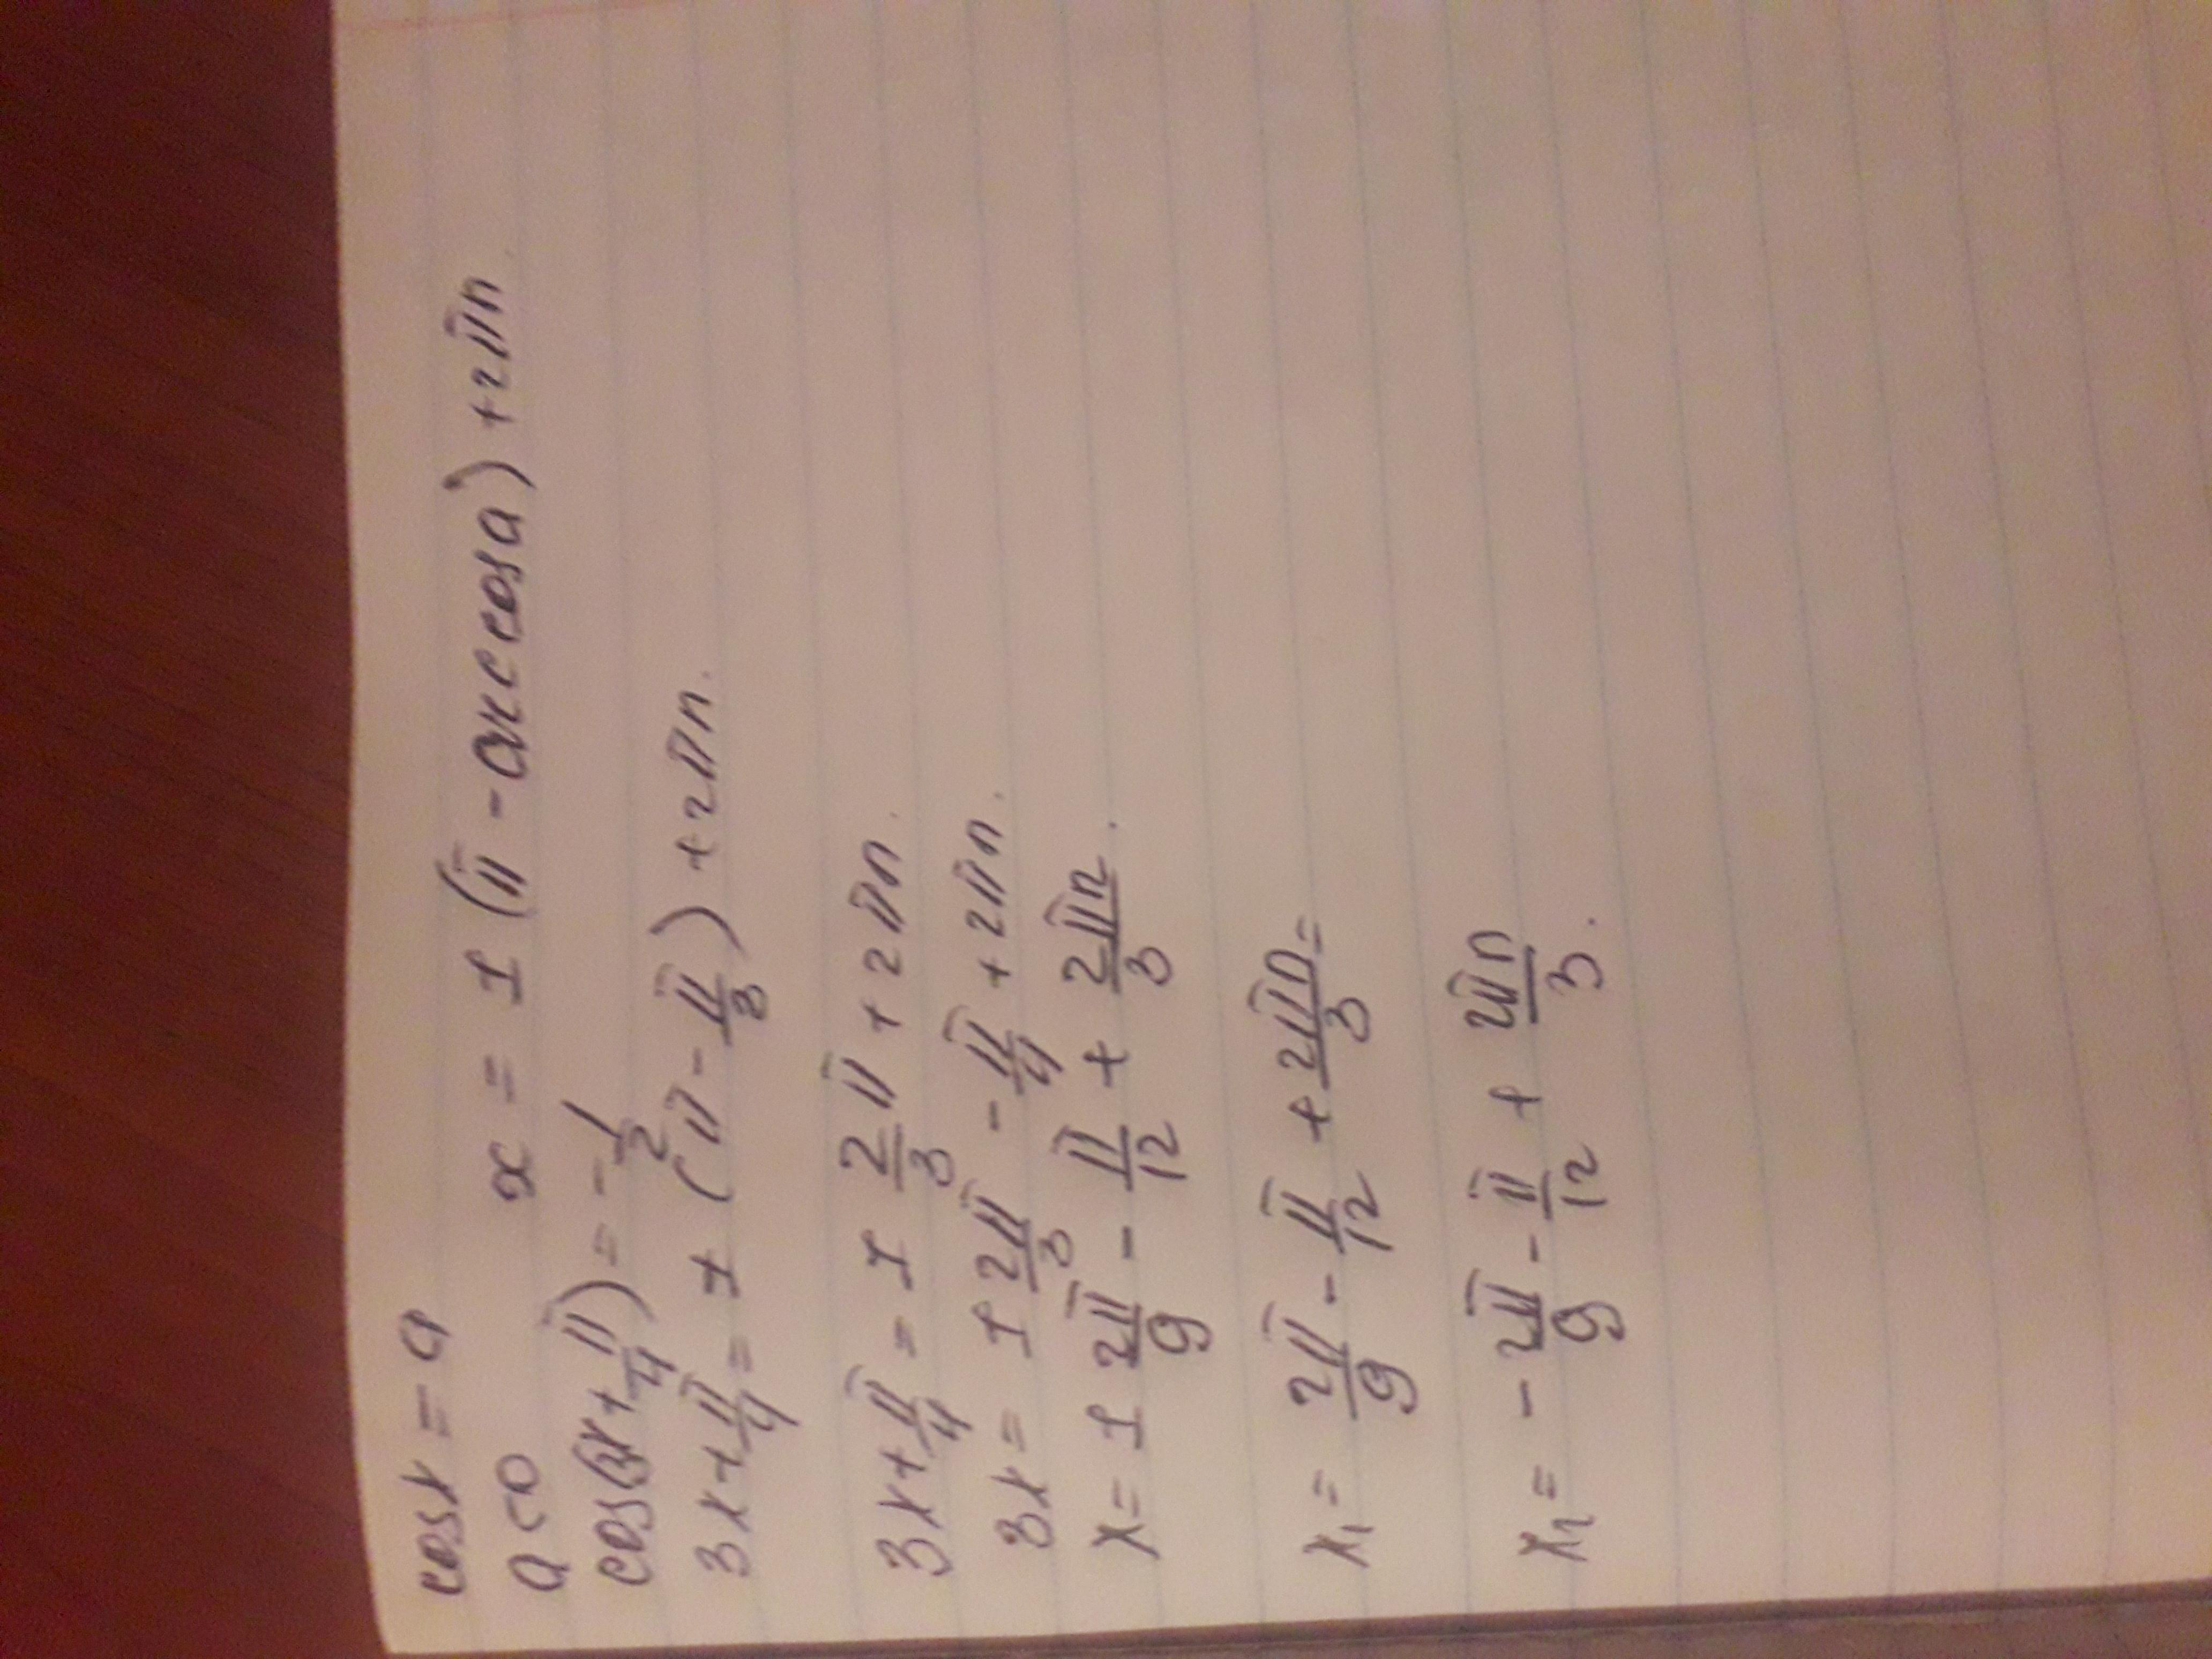 cosx = a
a<0 x = ± (π - arccosa) + 2πn.
cos(3x+π/4) = -1/2
3x+π/4 = ± (π - π/3) + 2πn.
3x+π/4 = ± 2/3 π + 2πn.
3x = ± 2π/3 - π/4 + 2πn.
x = ± 2π/9 - π/12 + 2πn/3.
x₁ = 2π/9 - π/12 + 2πn/3 =
x₂ = - 2π/9 - π/12 + 2πn/3.